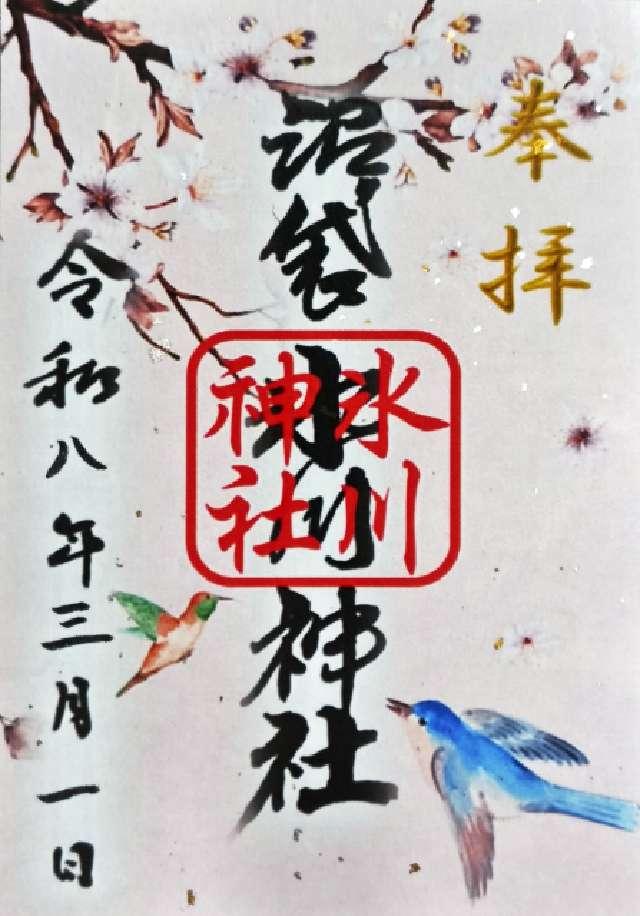 奉拝
沼袋氷川神社
氷川
神社
令和八年三月一日